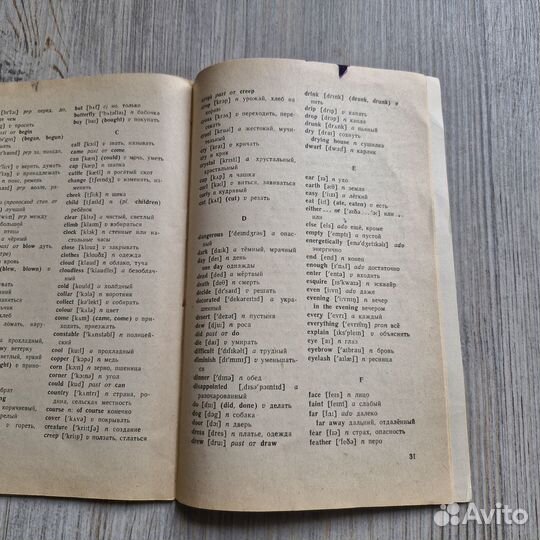 [bɪˈfɔː] prep перед, до,
v просить
past от begin
(began, begun)
prep за, позади,
v видеть, думать
v принадлежать
n пояс, ремень
prep возле, рядом
prep между
n птица
a чёрный
past от blow дуть,
(blew, blown) v
но, ломать, нару
му ветерку
брат
коричневый,
v гореть,
but [bʌt] cj но, только
butterfly [ˈbʌtəflaɪ] n бабочка
buy [baɪ] (bought) v покупать
C
call [kɔːl] v звать, называть
came past от come
can [kæn] (could) v мочь, уметь
cap [kæp] n шапка
change [tʃeɪndʒ] v изменять, изменить
cheek [tʃiːk] n щека
child [tʃaɪld] n (pl. children)
ребёнок
clear [klɪə] a чистый, светлый
climb [klaɪm] v взбираться
clock [klɔk] n стенные или настольные часы
close [klouz] v закрывать
clothes [klouðz] n одежда
cloud [klaud] n облако
cloudless [ˈklaudlɪs] a безоблачный
cold [kould] a холодный
collar [ˈkɔlə] n воротник
collect [kəˈlekt] v собирать
colour [ˈkʌlə] n цвет
come [kʌm] (came, come) v приходить, приезжать
constable [ˈkʌnstəbl] n полицейский
cool [kuːl] a прохладный
copper [ˈkɔpə] n медь
corn [kɔːn] n зерно, пшеница
corner [ˈkɔːnə] n угол
could [kud] past от can
country [ˈkʌntrɪ] n страна, родина, сельская местность
course n: of course конечно
cover [ˈkʌvə] v покрывать
creature [ˈkriːtʃə] n создание
creep [ˈkriːp] v ползать, стлаться
crept past от creep
crop [krɔp] n урожай, хлеб на корню
cross [krɔs] v переходить, пересекать
cruel [kruəl] a жестокий, мучительный
cry [kraɪ] v кричать
cry n крик
crystal [krɪstl] a хрустальный, кристальный
cup [kʌp] n чашка
curl [kəːl] v виться, завиваться
curly a кудрявый
cut [kʌt] (cut) v резать
D
dangerous [ˈdeɪndʒrəs] a опасный
dark [dɑːk] a тёмный, мрачный
day [deɪ] n день
one day однажды
dead [ded] a мёртвый
death [deθ] n смерть
decide [dɪˈsaɪd] v решать
decorated [ˈdekəreɪtɪd] a украшенный
desert [ˈdezət] n пустыня
dew [djuː] n роса
did past от do
die [daɪ] v умирать
difficult [ˈdɪfɪkəlt] a трудный
diminish [dɪˈmɪnɪʃ] v уменьшаться
dinner [ˈdɪnə] n обед
disappointed [ˌdɪsəˈpɔɪntɪd] a разочарованный
do [duː] (did, done) v делать
dog [dɔg] n собака
door [dɔː] n дверь
dress [dres] n платье, одежда
drew [druː] past от draw
drink [drɪŋk] (drank, drunk) v пить
drip [drɪp] v капать
drop [drɔp] v капать
drunk [drʌŋk] a пьяный
dry [draɪ] v сохнуть
drying [ˈdraɪɪŋ] n сушка
dwarf [dwɔːf] n карлик
E
ear [ɪə] n ухо
earth [əːθ] n земля
east [iːst] n восток
eat [iːt] (ate, eaten) v есть
either ... or или ... или
else [els] adv ещё, кроме
empty [ˈemptɪ] a пустой
energetically [ˌenəˈdʒetɪkəlɪ] adv энергично
end [end] n конец
enough [ɪˈnʌf] adv достаточно
enter [ˈentə] v входить
esquire [ɪsˈkwaɪə] n эсквайр
even [iːvn] adv даже
evening [ˈiːvnɪŋ] n вечер
in the evening вечером
every [ˈevrɪ] a каждый
everything [ˈevrɪθɪŋ] pron всё
explain [ɪksˈpleɪn] v объяснять
eye [aɪ] n глаз
eyebrow [ˈaɪbrau] n бровь
eyelash [ˈaɪlæʃ] n ресница
F
face [feɪs] n лицо
faint [feɪnt] a слабый
far [fɑː] adv далеко
far away дальний, отдалённый
fear [fɪə] n страх, опасность
feather [ˈfeðə] n перо
31
Avito